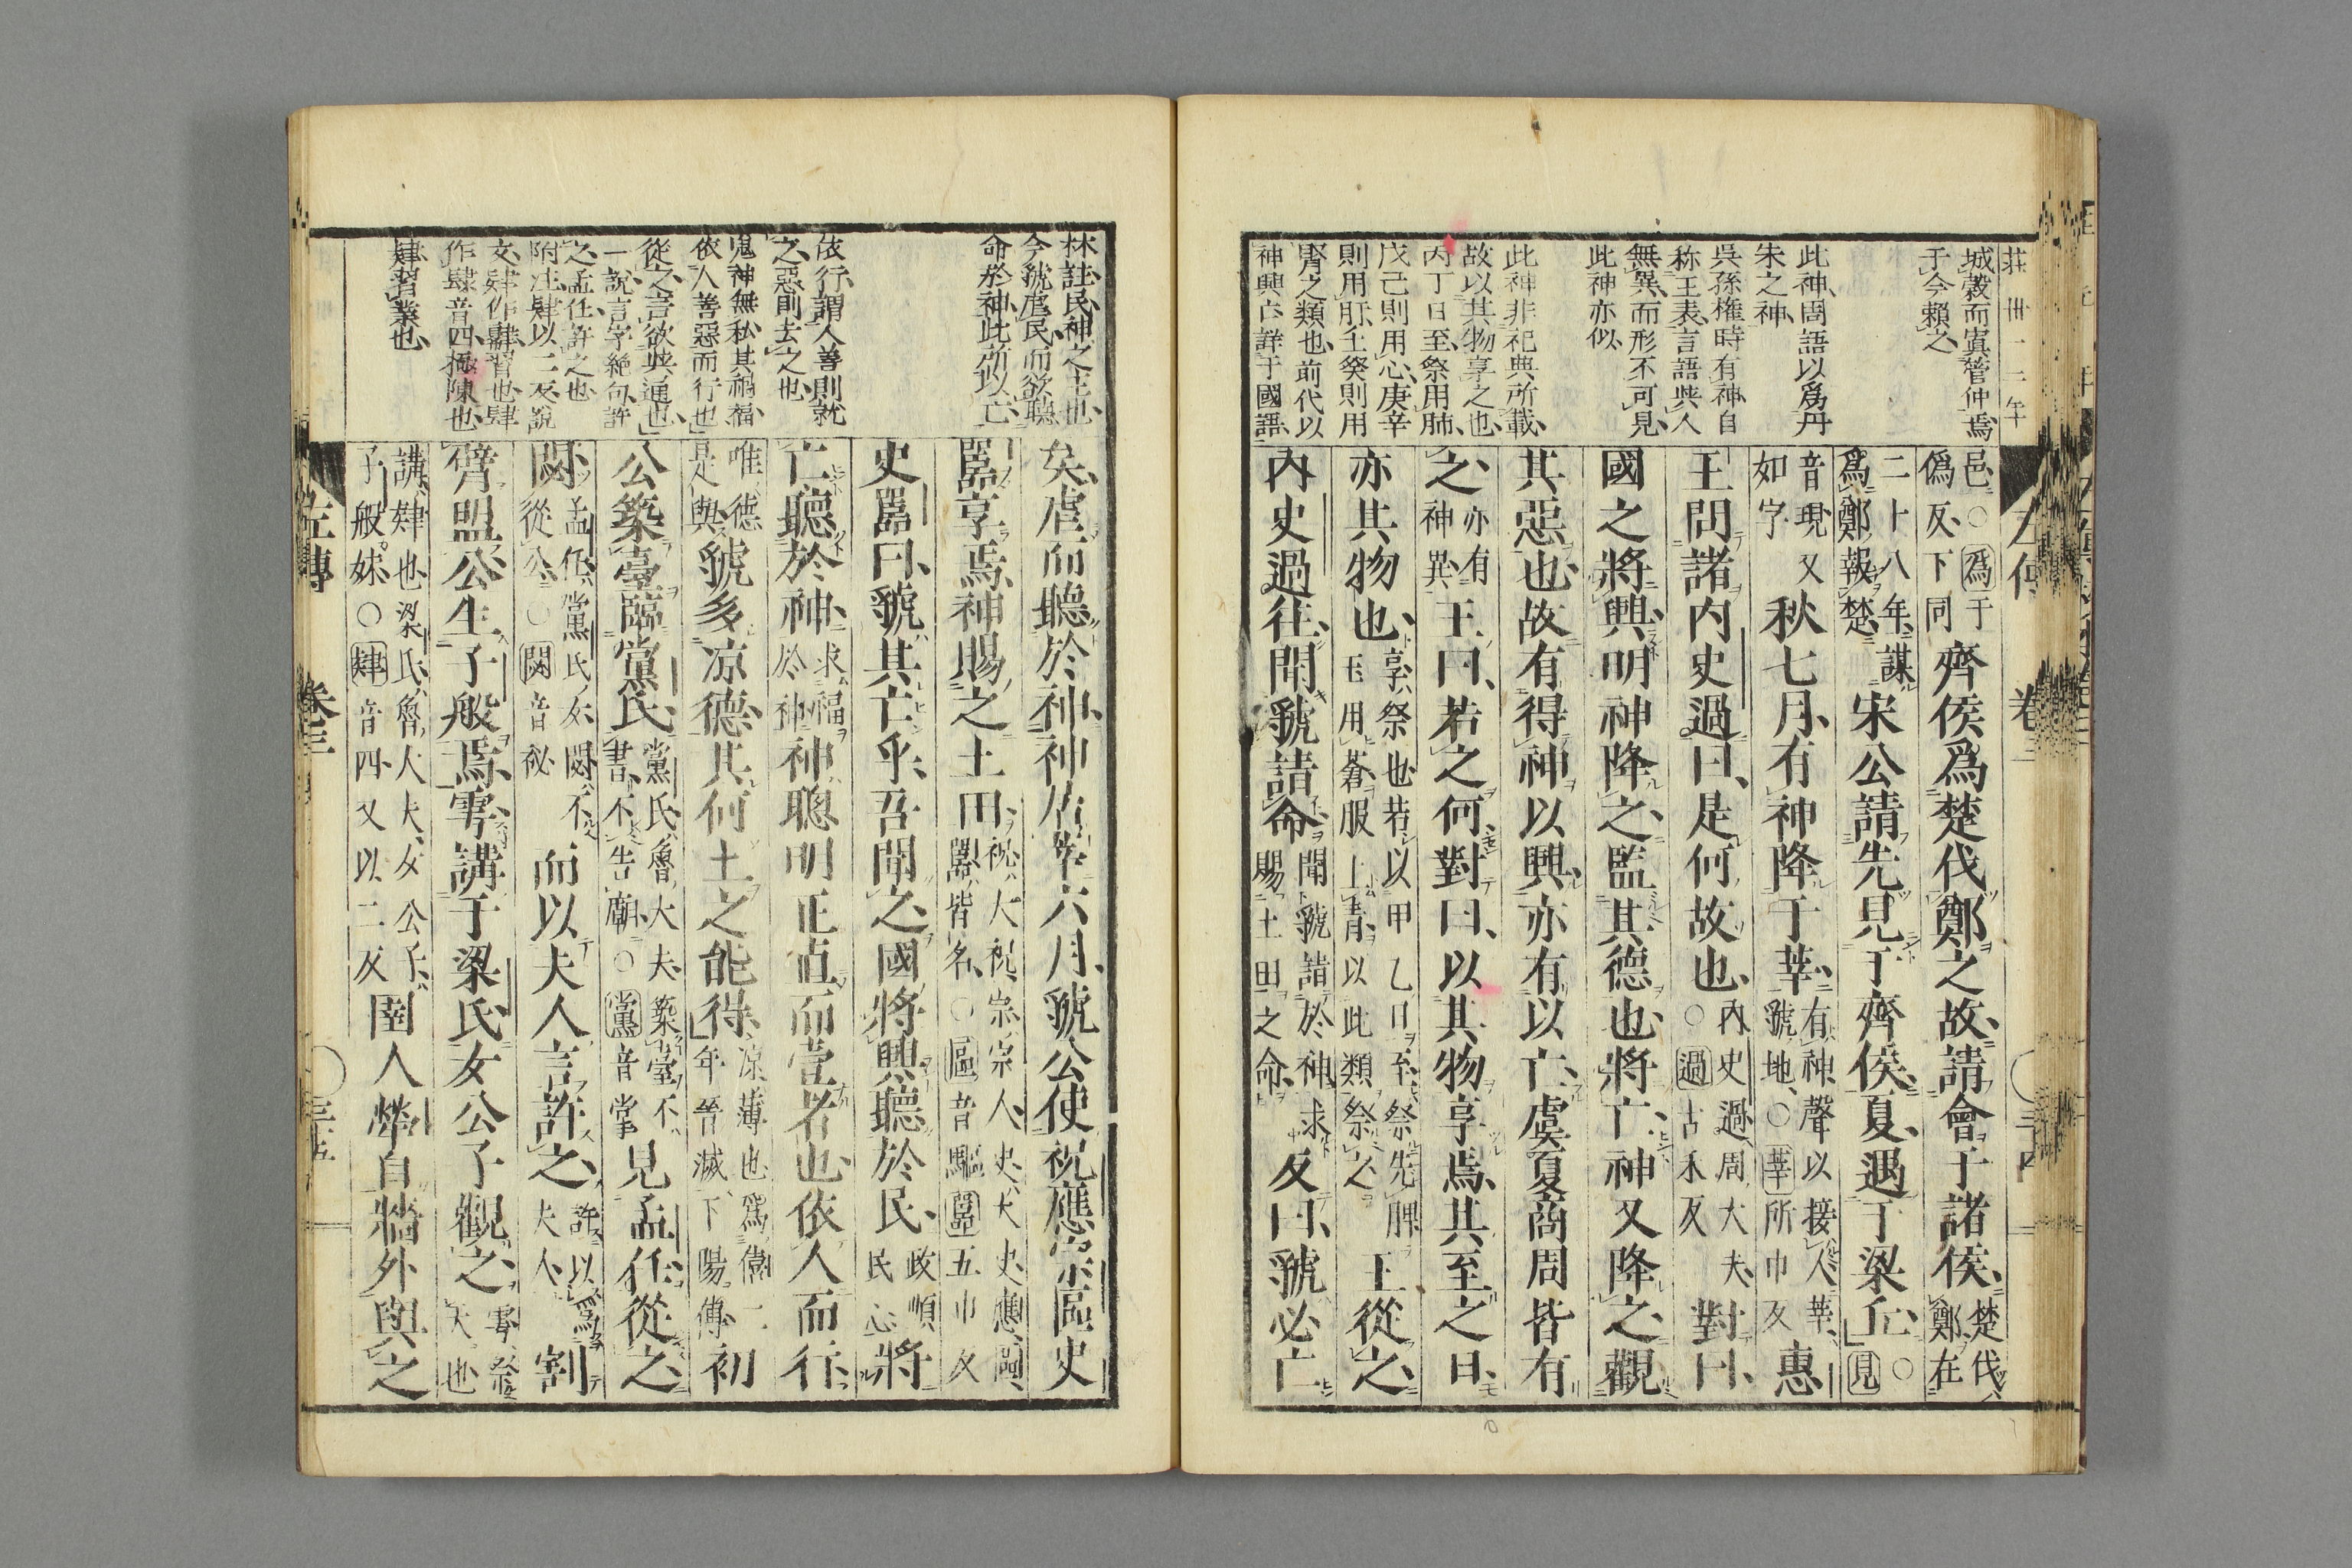 莊卅二年
城穀而寘管仲焉
于今賴之
此神周語以爲丹
朱之神
吳孫權時有神自
称王表言語與人
無異而形不可見
此神亦似
此神非祀典所載
故以其物享之也
丙丁日至祭用肺
戊己則用心庚辛
則用肝壬癸則用
腎之類也前代以
神興亡詳于國語
邑○爲于
僞反下同
齊侯爲楚伐鄭之故請會于諸侯
楚伐
鄭在
二十八年謀
爲鄭報楚
宋公請先見于齊侯夏遇于梁丘
○
見
音現又
如字
秋七月有神降于莘
有神聲以接人莘
虢地○莘所巾反
惠
王問諸內史過曰是何故也
內史過周大夫
○過古禾反
對曰
國之將興明神降之監其德也將亡神又降之觀
其惡也故有得神以興亦有以亡虞夏商周皆有
之
亦有
神異
王曰若之何對曰以其物享焉其至之日
亦其物也
享祭也若以甲乙日至祭先脾
玉用蒼服上青以此類祭之
王從之
內史過往聞虢請命
聞虢請於神求
賜土田之命
反曰虢必亡
左傳 卷三 三十四
林註民神之主也
今虢虐民而欲聽
命於神此所以亡
依行謂人善則就
之惡則去之也
鬼神無私其禍福
依人善惡而行也
從之言欲與通也
一說言字絕句許
之孟任許之也
附注肄以二反說
文肄作肄習也肆
作肆音四極陳也
肄習業也
矣虐而聽於神神居莘六月虢公使祝應宗區史
嚚享焉神賜之土田
祝大祝宗宗人史大史應區
嚚皆名○區音驅嚚五巾反
史嚚曰虢其亡乎吾聞之國將興聽於民
政順
民心
將
亡聽於神
求福
於神
神聰明正直而壹者也依人而行
唯德
是與
虢多涼德其何土之能得
涼薄也爲僖二
年晉滅下陽傳
初
公築臺臨黨氏
黨氏魯大夫築臺不
書不告廟○黨音掌
見孟任從之
閟
孟任黨氏女閟不
從公○閟音祕
而以夫人言許之
許以爲
夫人
割
臂盟公生子般焉雩講于梁氏女公子觀之
雩祭
天也
講肄也梁氏魯大夫女公子
子般妹○肄音四又以二反
圉人犖自牆外與之
左傳 卷三 三十五